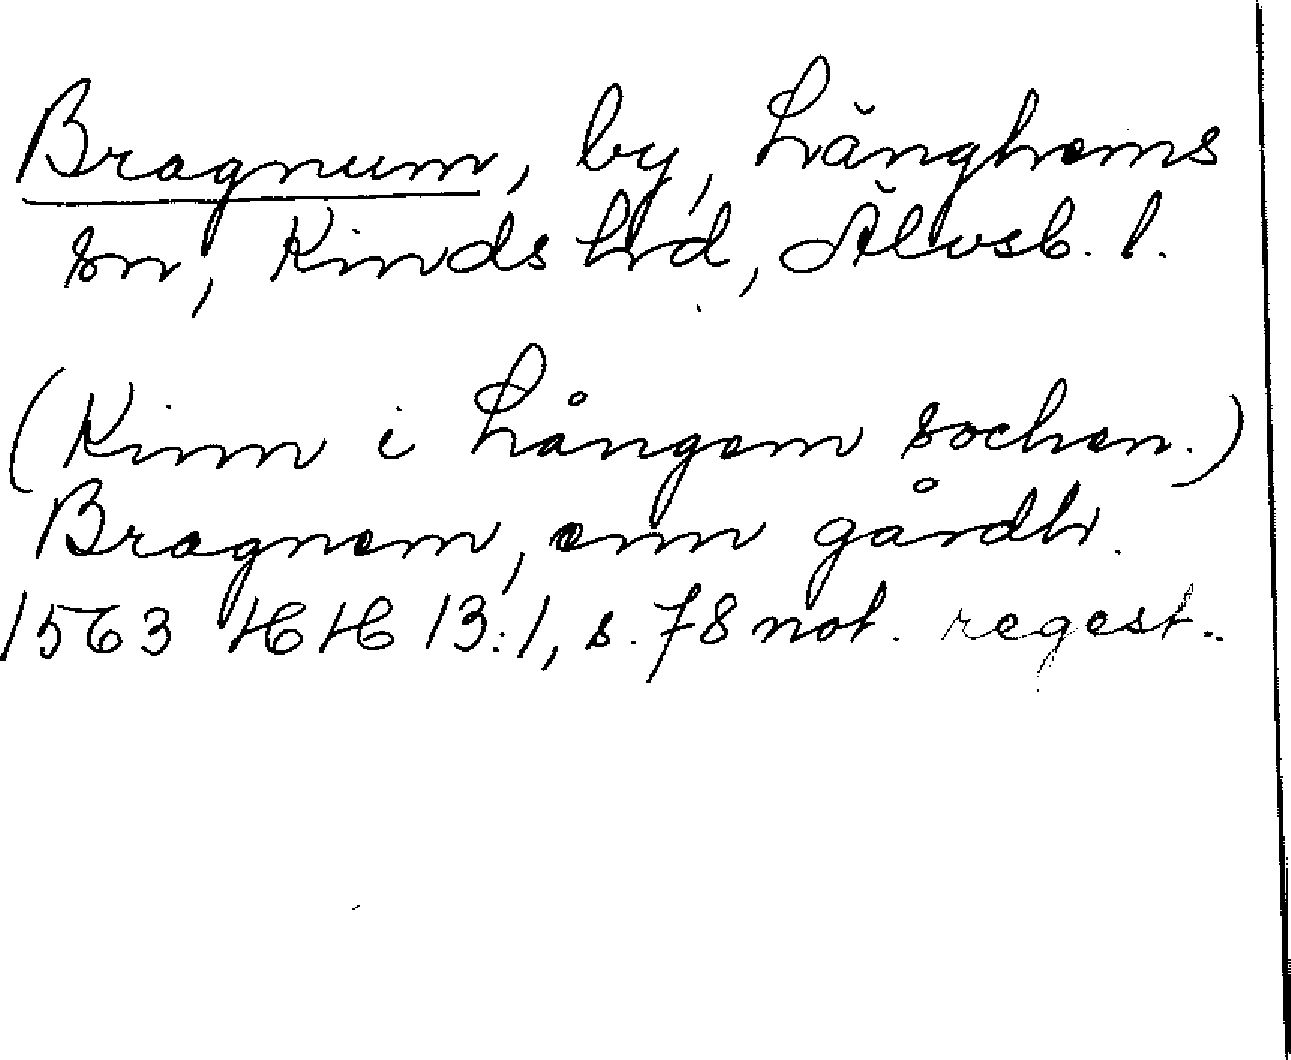 Bragnum, by, Länghems
sn, Kinds hd, Älvsb. l.
(Kinn i Långem sochen.)
Bragnem, enn gårdh.
1563 HH 13:1, s. 78 not. regest.